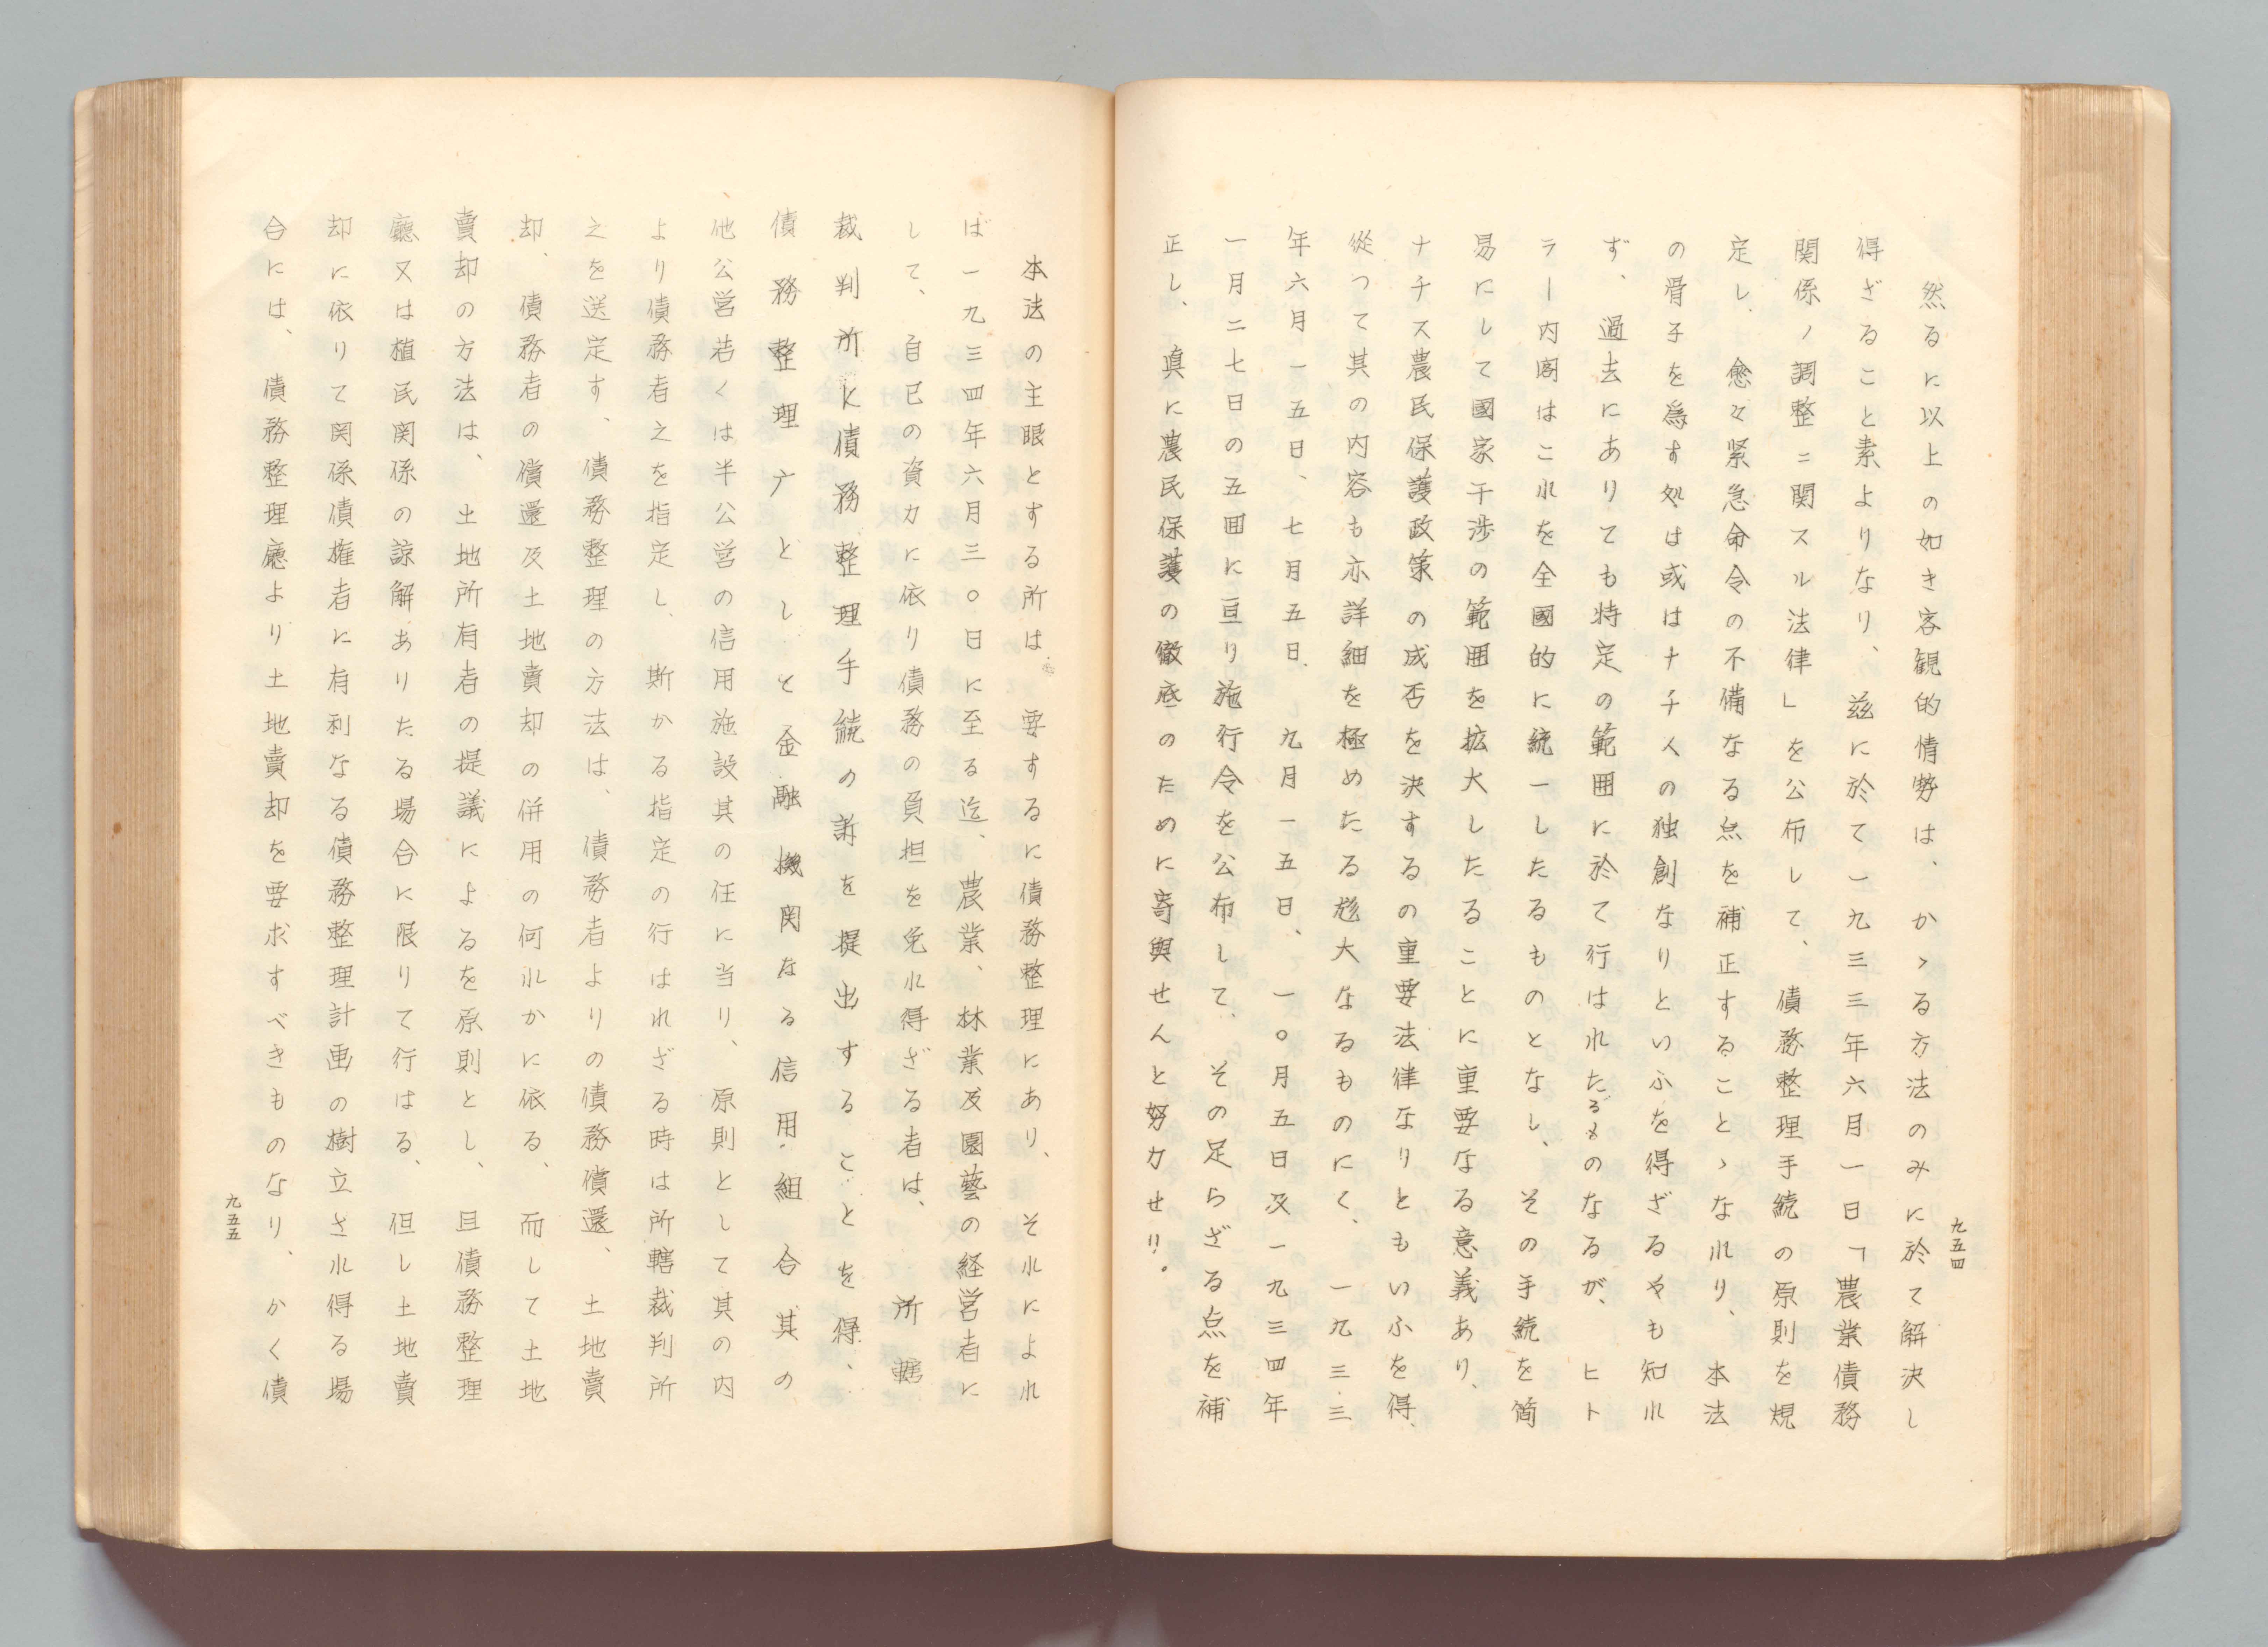 九五四
然るに以上の如き客観的情勢は、かゝる方法のみに於て解決し
得ざること素よりなり、玆に於て一九三三年六月一日「農業債務
関係ノ調整ニ関スル法律」を公布して、債務整理手続の原則を規
定し、愈々緊急命令の不備なる点を補正することゝなれり、本法
の骨子を為す処は或はナチ人の独創なりといふを得ざるやも知れ
ず、過去にありても特定の範囲に於て行はれたるものなるが、ヒト
ラー内閣はこれを全國的に統一したるものとなし、その手続を簡
易にして國家干渉の範囲を拡大したることに重要なる意義あり、
ナチス農民保護政策の成否を決するの重要法律なりともいふを得、
從つて其の内容も亦詳細を極めたる尨大なるものにく、一九三三
年六月一五日、七月五日、九月一五日、一〇月五日及一九三四年
一月二七日の五囬に亘り施行令を公布して、その足らざる点を補
正し、真に農民保護の徹底のために寄與せんと努力せり。
本法の主眼とする所は、要するに債務整理にあり、それによれ
ば一九三四年六月三〇日に至る迄、農業、林業及園藝の経営者に
して、自己の資力に依り債務の負担を免れ得ざる者は、所轄
裁判所に債務整理手続の訴を提出することを得、
債務整理庁としと金融機関なる信用組合其の
他公営若くは半公営の信用施設其の任に当り、原則として其の内
より債務者之を指定し、斯かる指定の行はれざる時は所轄裁判所
之を送定す、債務整理の方法は、債務者よりの債務償還、土地賣
却、債務者の償還及土地賣却の併用の何れかに依る、而して土地
賣却の方法は、土地所有者の提議によるを原則とし、且債務整理
廳又は植民関係の諒解ありたる場合に限りて行はる、但し土地賣
却に依りて関係債権者に有利なる債務整理計画の樹立され得る場
合には、債務整理廳より土地賣却を要求すべきものなり、かく債
九五五